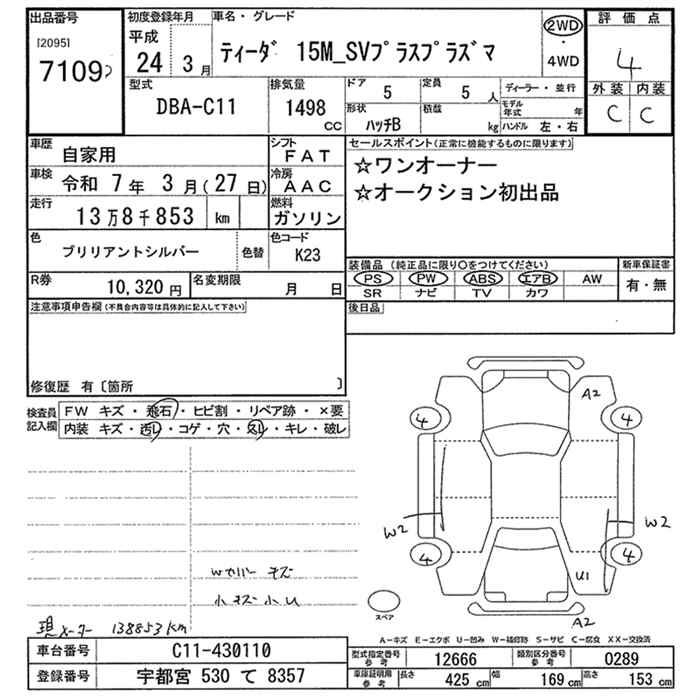 出品番号
[2095]
7109
初度登録年月
平成
24 3 月
車名・グレード
ティーダ 15M_SVプラスプラズマ
2WD
・
4WD
評価点
4
外装 内装
C C
型式
DBA-C11
排気量
1498
CC
ドア
5
定員
5 人
形状
ハッチB
積載
kg
ディーラー・並行
モデル年式 年
ハンドル 左・右
車歴
自家用
シフト
FAT
車検 令和 7 年 3 月 ( 27 日)
冷房
AAC
走行
13万8千853 km
燃料
ガソリン
色
ブリリアントシルバー
色替
色コード
K23
R券
10,320 円
名変期限
月 日
セールスポイント(正常に機能するものに限ります)
☆ワンオーナー
☆オークション初出品
装備品(純正品に限り○をつけてください)
PS PW ABS エアB AW
SR ナビ TV カワ
新車保証書
有・無
後日品
注意事項申告欄(不具合内容等は具体的に記入して下さい)
修復歴 有〔箇所 〕
検査員記入欄
FW キズ・飛石・ヒビ割・リペア跡・×要
内装 キズ・汚レ・コゲ・穴・スレ・キレ・破レ
A2
4 4
W2 W2
4 4
U1
A2
スペア
Wカバー キズ
小キズ小U
現メーター 138853km
A-キズ E-エクボ U-凹み W-補修跡 S-サビ C-腐食 XX-交換済
車台番号 C11-430110
登録番号 宇都宮 530 て 8357
型式指定番号 参考 12666
類別区分番号 参考 0289
車庫証明用 参考
長さ 425 cm 幅 169 cm 高さ 153 cm